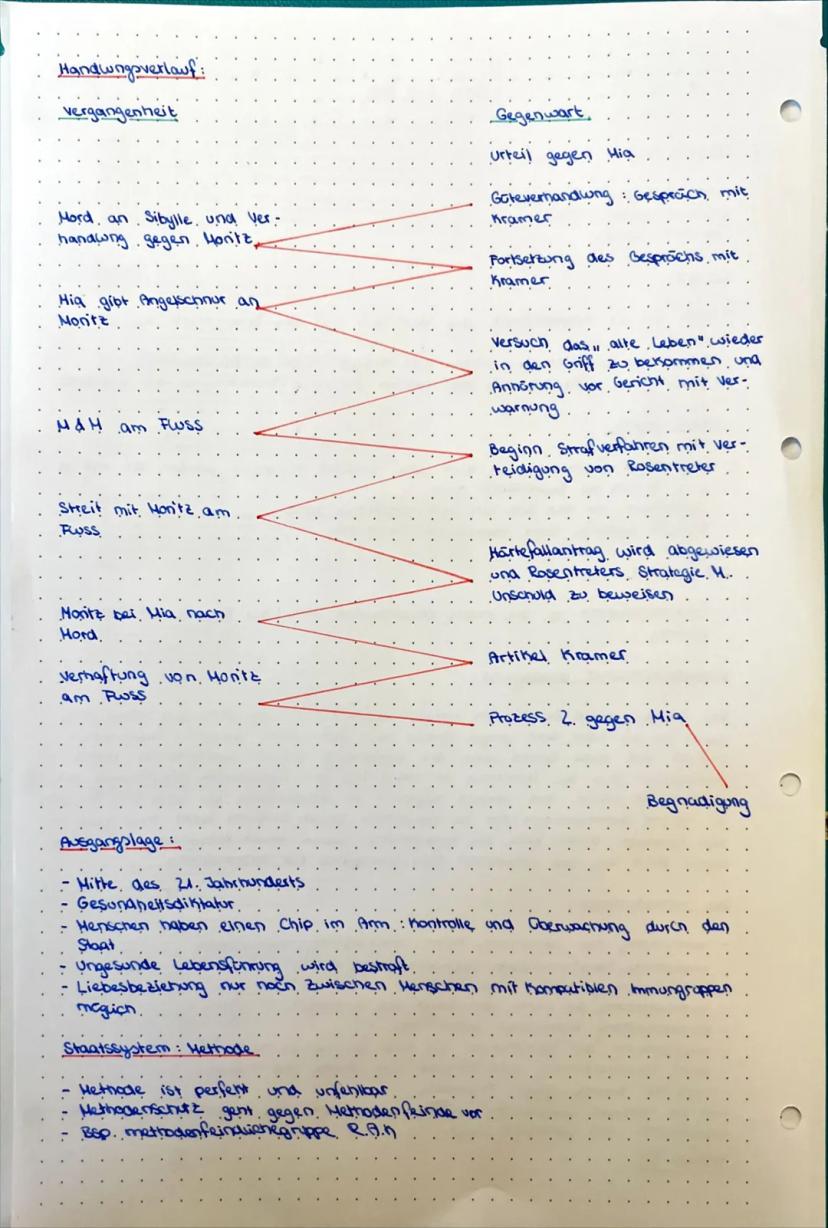 Handlungsverlauf:
Vergangenheit
Gegenwart
Urteil gegen Mia
Güteverhandlung : Gespräch mit
Kramer
Mord an Sibylle und Ver-
handlung gegen Moritz
Fortsetzung des Gesprächs mit
Kramer
Mia gibt Angelschnur an
Moritz
Versuch das „alte Leben" wieder
in den Griff zu bekommen und
Anhörung vor Gericht mit Ver-
warnung
M & M am Fluss
Beginn Strafverfahren mit Ver-
teidigung von Rosentreter
Streit mit Moritz am
Fluss
Härtefallantrag wird abgewiesen
und Rosentreters Strategie M.
Unschuld zu beweisen
Moritz bei Mia nach
Mord
Artikel Kramer
Verhaftung von Moritz
am Fluss
Prozess 2 gegen Mia
Begnadigung
Ausgangslage :
- Mitte des 21. Jahrhunderts
- Gesundheitsdiktatur
- Menschen haben einen Chip im Arm : Kontrolle und Überwachung durch den
Staat
- Ungesunde Lebensführung wird bestraft
- Liebesbeziehung nur noch zwischen Menschen mit kompatiblen Immungruppen
möglich
Staatssystem : Methode
- Methode ist perfekt und unfehlbar
- Methodenschutz geht gegen Methodenfeinde vor
- Bsp. methodenfeindlichegruppe R.A.K